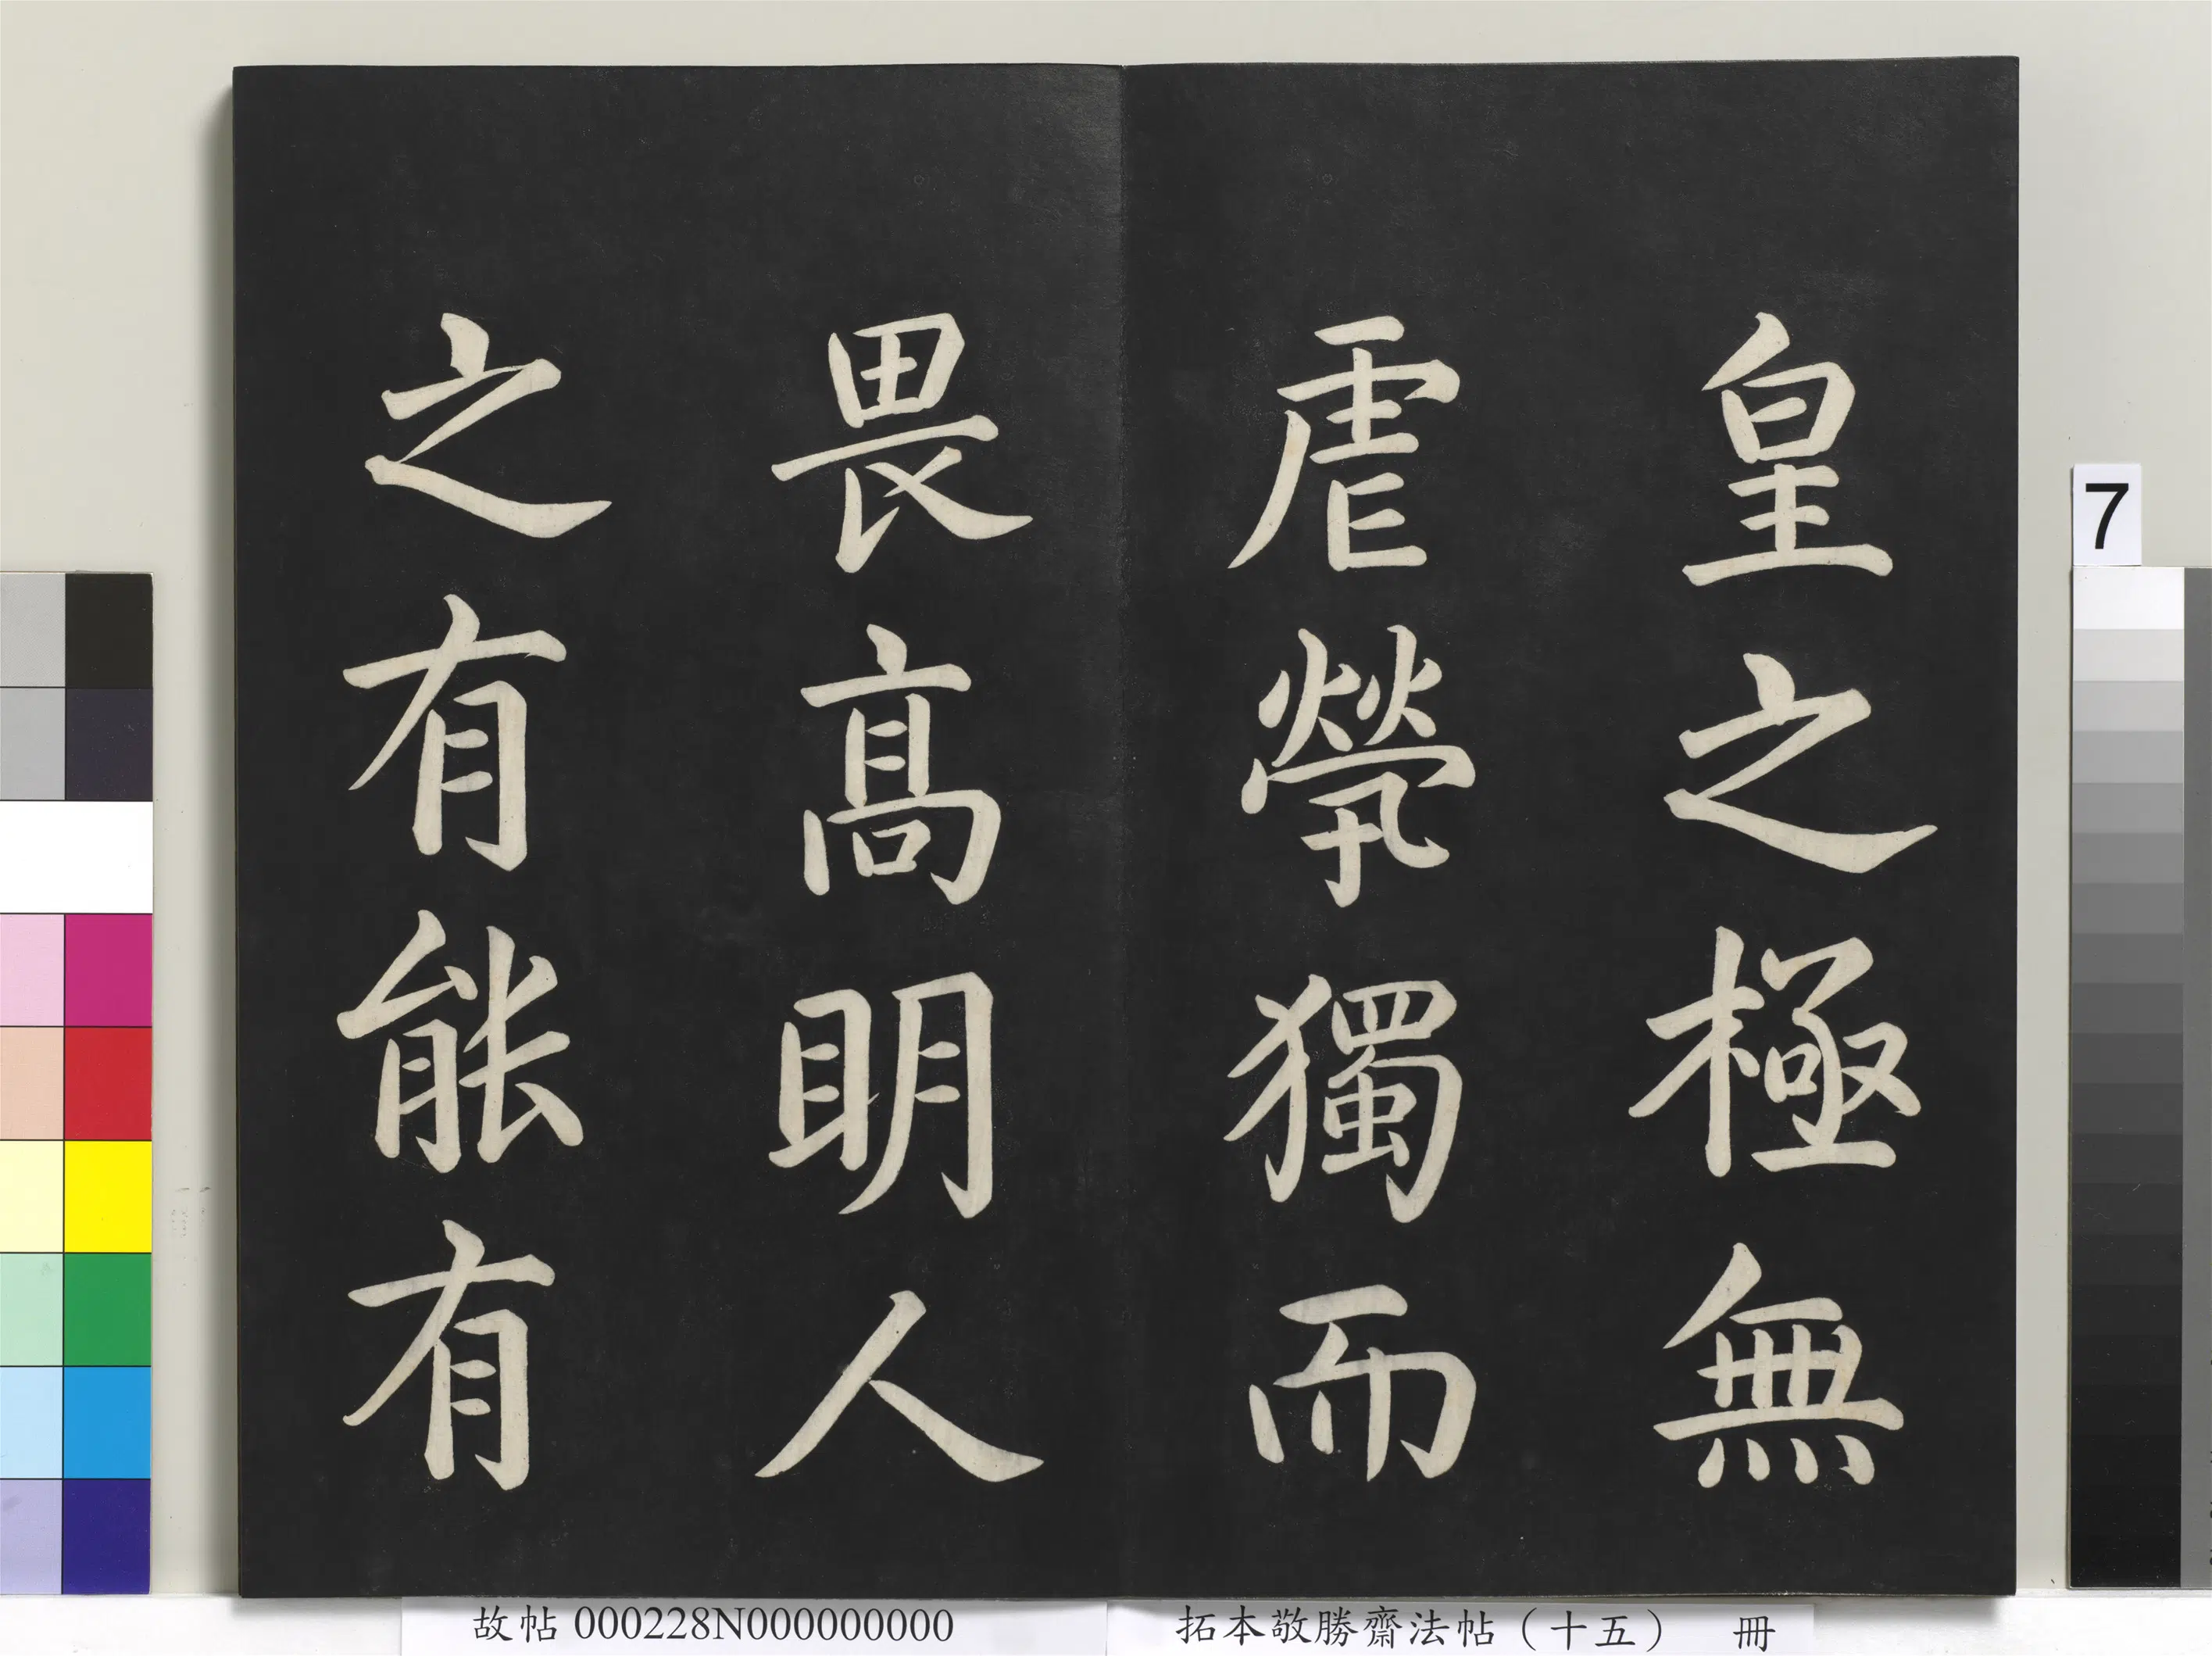 皇之極無
虐煢獨而
畏高明人
之有能有
7
故帖 000228N000000000
拓本敬勝齋法帖（十五） 冊